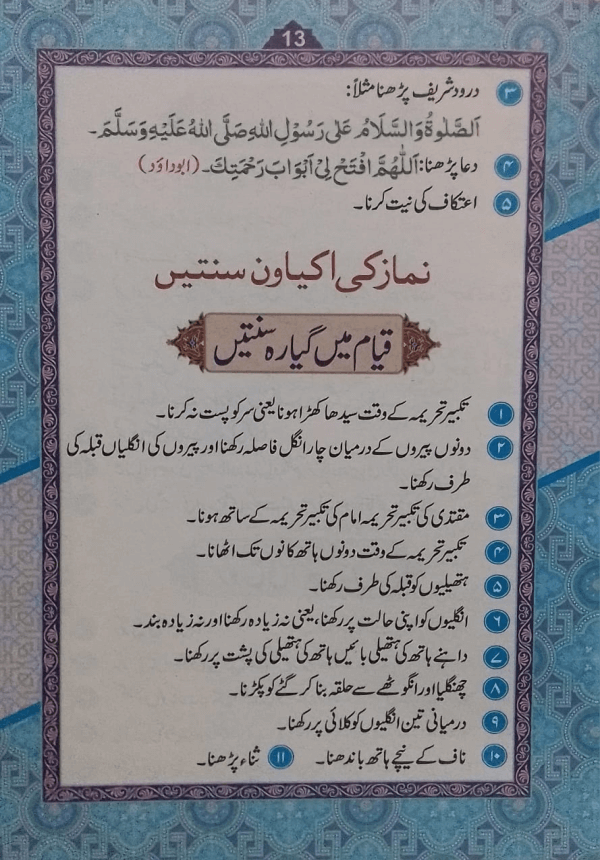 13
۳ درود شریف پڑھنا مثلاً:
اَلصَّلٰوةُ وَالسَّلَامُ عَلٰی رَسُوْلِ اللهِ صَلَّی اللهُ عَلَیْهِ وَسَلَّمَ۔
۴ دعا پڑھنا: اَللّٰهُمَّ افْتَحْ لِیْ اَبْوَابَ رَحْمَتِكَ۔ (ابوداؤد)
۵ اعتکاف کی نیت کرنا۔
نماز کی اکیاون سنتیں
قیام میں گیارہ سنتیں
۱ تکبیر تحریمہ کے وقت سیدھا کھڑا ہونا یعنی سر کو پست نہ کرنا۔
۲ دونوں پیروں کے درمیان چار انگل فاصلہ رکھنا اور پیروں کی انگلیاں قبلہ کی
طرف رکھنا۔
۳ مقتدی کی تکبیر تحریمہ امام کی تکبیر تحریمہ کے ساتھ ہونا۔
۴ تکبیر تحریمہ کے وقت دونوں ہاتھ کانوں تک اٹھانا۔
۵ ہتھیلیوں کو قبلہ کی طرف رکھنا۔
۶ انگلیوں کو اپنی حالت پر رکھنا، یعنی نہ زیادہ رکھنا اور نہ زیادہ بند۔
۷ داہنے ہاتھ کی ہتھیلی بائیں ہاتھ کی ہتھیلی کی پشت پر رکھنا۔
۸ چھنگلیا اور انگوٹھے سے حلقہ بنا کر گٹے کو پکڑنا۔
۹ درمیانی تین انگلیوں کو کلائی پر رکھنا۔
۱۰ ناف کے نیچے ہاتھ باندھنا۔ ۱۱ ثناء پڑھنا۔